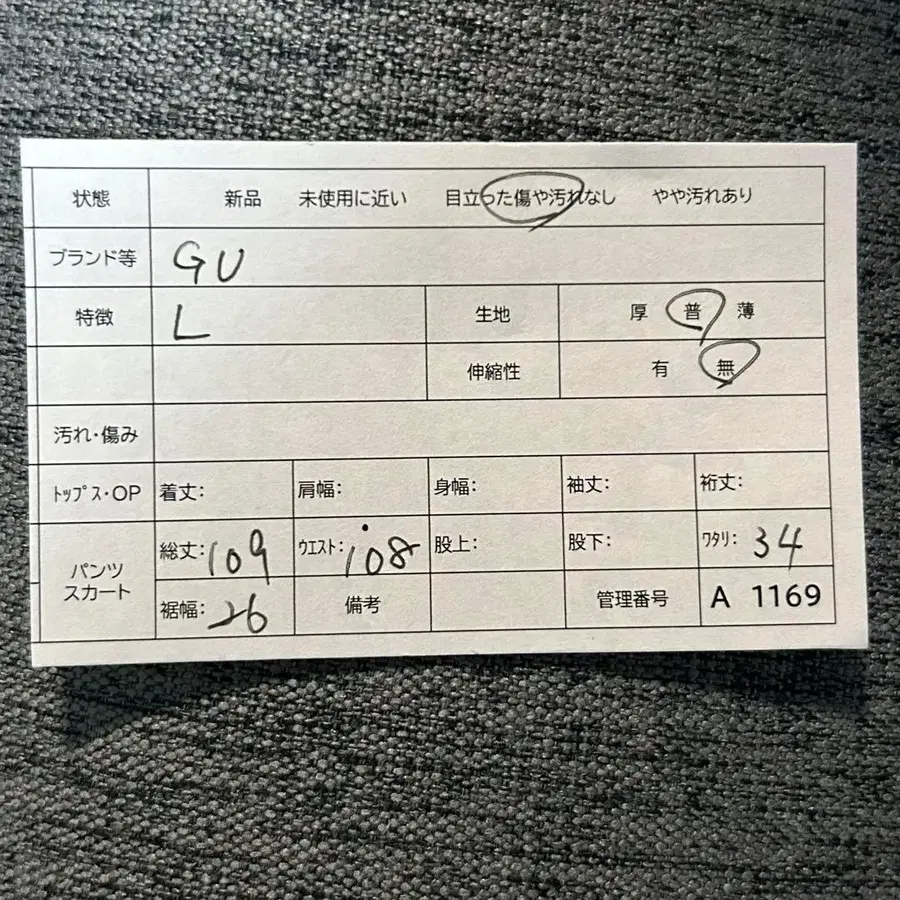 状態 新品 未使用に近い 目立った傷や汚れなし やや汚れあり
ブランド等 GU
特徴 L 生地 厚 普 薄
伸縮性 有 無
汚れ・傷み
トップス・OP 着丈: 肩幅: 身幅: 袖丈: 裄丈:
パンツ スカート 総丈: 109 ウエスト: 108 股上: 股下: ワタリ: 34
裾幅: 26 備考 管理番号 A 1169